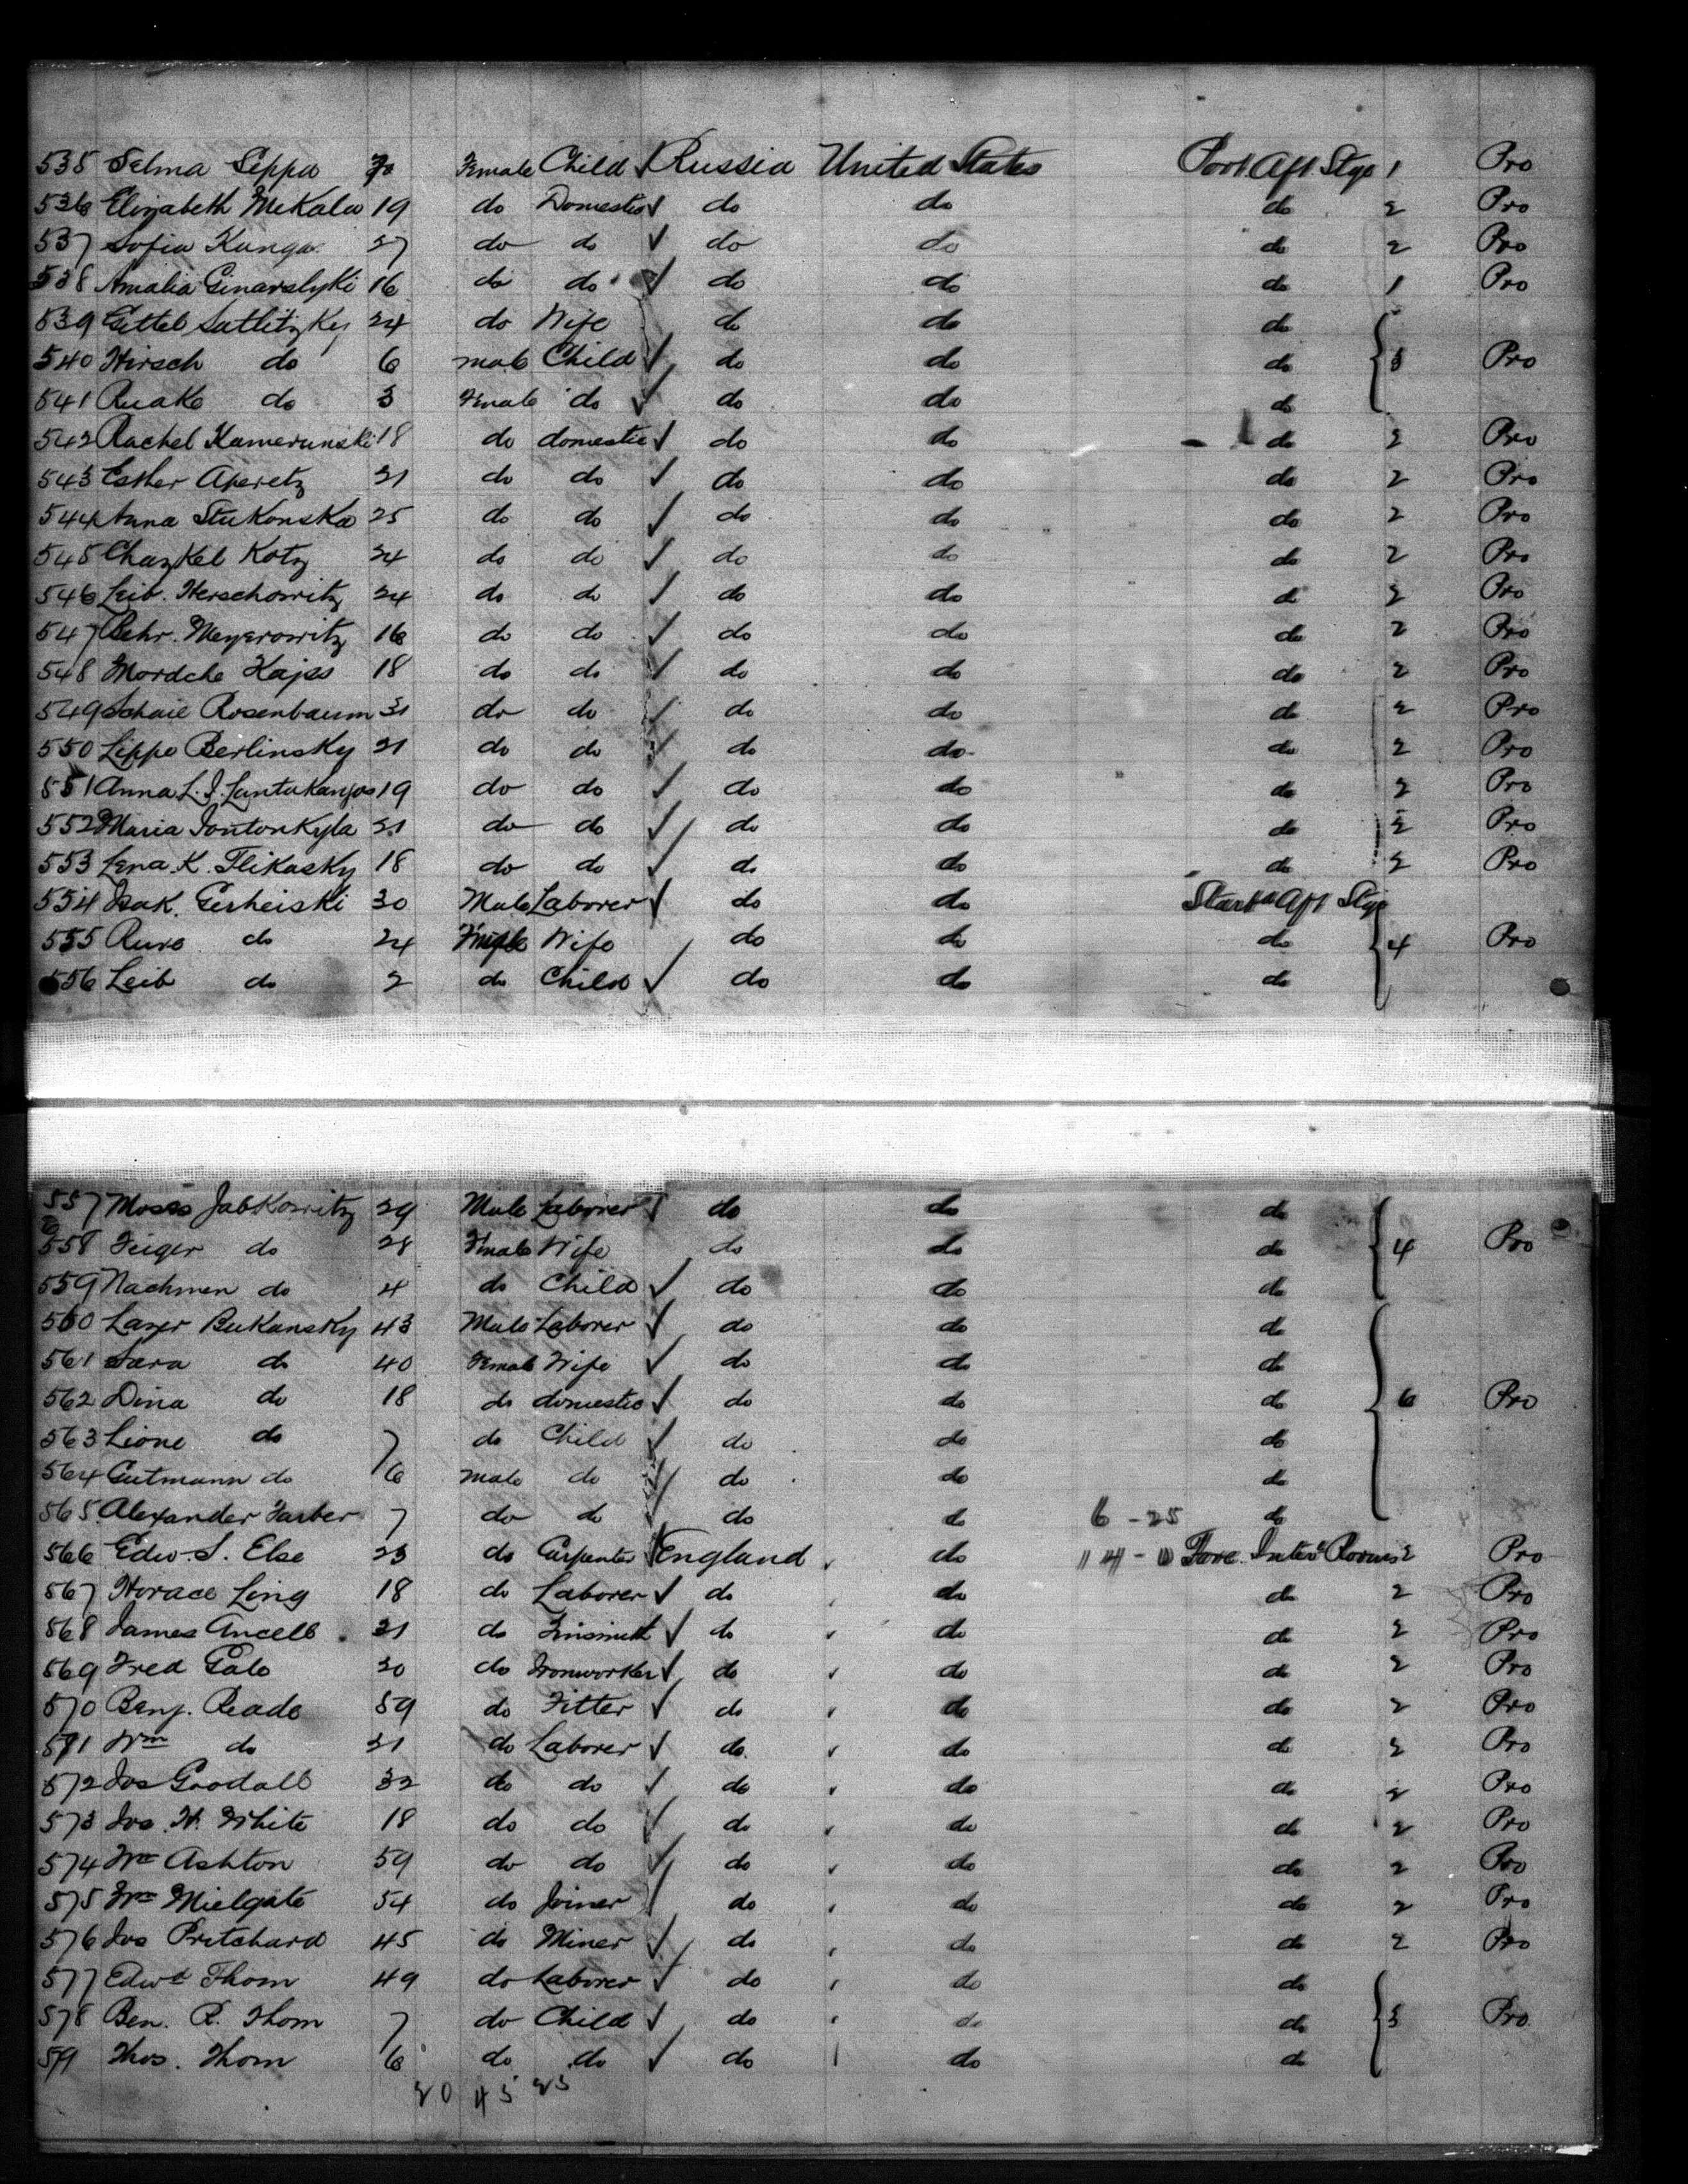 535 Selma Seppa Female Child ✓ Russia United States Port Aft Stge 1 Pro
536 Elizabeth McKala 19 do Domestic ✓ do do do 2 Pro
537 Sofia Kanga 27 do do ✓ do do do 2 Pro
538 Amalia 16 do do ✓ do do do 1 Pro
539 Gettel Satlitzky 24 do Wife do do do
540 Hirsch do 6 male Child ✓ do do do 3 Pro
541 Ruake do 3 Female do ✓ do do do
542 Rachel Kamerunski 18 do domestic ✓ do do do 2 Pro
543 Esther Aperetz 21 do do ✓ do do do 2 Pro
544 Anna Stukonska 25 do do ✓ do do do 2 Pro
545 Chazkel Kotz 24 do do ✓ do do do 2 Pro
546 Leib. Herschowitz 24 do do ✓ do do do 2 Pro
547 Behr. Meyerowitz 16 do do ✓ do do do 2 Pro
548 Mordche Hajes 18 do do ✓ do do do 2 Pro
549 Schaie Rosenbaum 31 do do ✓ do do do 2 Pro
550 Lippe Berlinsky 21 do do ✓ do do do 2 Pro
551 Anna L. J. Luntakangas 19 do do ✓ do do do 2 Pro
552 Maria Jontonkyla 21 do do ✓ do do do 2 Pro
553 Lena K. Flikasky 18 do do ✓ do do do 2 Pro
554 Isak. Gerheiski 30 Male Laborer ✓ do do Starbd Aft Stge
555 Rure do 24 Female Wife do do do 4 Pro
556 Leib do 2 do Child ✓ do do do
557 Moses Jabkowitz 29 Male Laborer ✓ do do do
558 Feiger do 28 Female Wife do do do 4 Pro
559 Nachmen do 4 do Child ✓ do do do
560 Lazer Bukansky 43 Male Laborer ✓ do do do
561 Sara do 40 Female Wife ✓ do do do
562 Dina do 18 do domestic ✓ do do do 6 Pro
563 Lione do 7 do Child ✓ do do do
564 Gutmann do 6 male do ✓ do do do
565 Alexander Farber 7 do do ✓ do do 6 - 25 do
566 Edw. S. Else 23 do Carpenter ✓ England do Fore. Inter Rooms 2 Pro
567 Horace Ling 18 do Laborer ✓ do do do 2 Pro
568 James Ancell 21 do Tinsmith ✓ do do do 2 Pro
569 Fred Gale 20 do Ironworker ✓ do do do 2 Pro
570 Benj. Reade 59 do Fitter ✓ do do do 2 Pro
571 Wm do 21 do Laborer ✓ do do do 2 Pro
572 Jos Goodall 32 do do ✓ do do do 2 Pro
573 Jos. H. White 18 do do ✓ do do do 2 Pro
574 Wm Ashton 59 do do ✓ do do do 2 Pro
575 Wm Mielgate 54 do Joiner ✓ do do do 2 Pro
576 Jos Pritchard 45 do Miner ✓ do do do 2 Pro
577 Edwd Thom 49 do Laborer ✓ do do do
578 Ben. R. Thom 7 do Child ✓ do do do 3 Pro
579 Thos. Thom 6 do do ✓ do do do
20 45 25